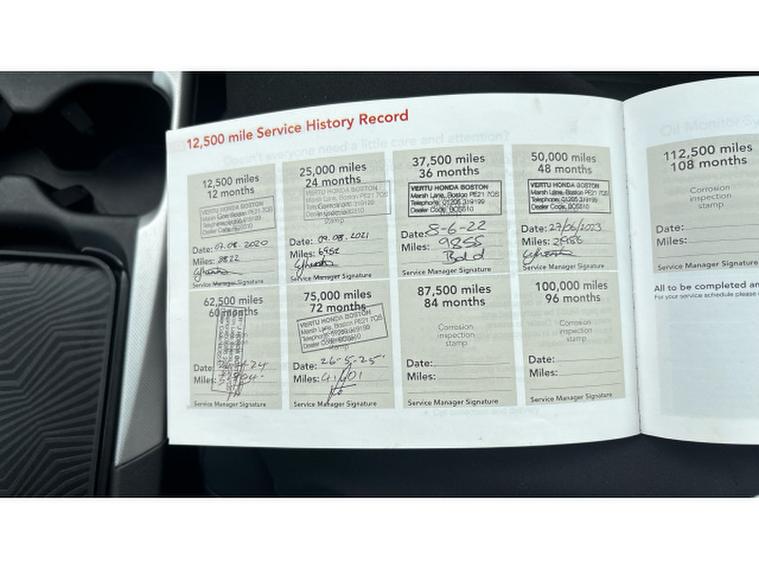 12,500 mile Service History Record
12,500 miles
12 months
VERTU HONDA BOSTON
Marsh Lane, Boston PE21 7QS
Date: 07.08.2020
Miles: 3822
Service Manager Signature
25,000 miles
24 months
VERTU HONDA BOSTON
Marsh Lane, Boston PE21 7QS
Date: 09.08.2021
Miles: 6952
Service Manager Signature
37,500 miles
36 months
VERTU HONDA BOSTON
Marsh Lane, Boston PE21 7QS
Telephone: 01205 319199
Dealer Code: BOS510
Date: 8-6-22
Miles: 9855
Service Manager Signature
50,000 miles
48 months
VERTU HONDA BOSTON
Marsh Lane, Boston PE21 7QS
Telephone: 01205 319199
Dealer Code: BOS510
Date: 27/06/2023
Miles:
Service Manager Signature
62,500 miles
60 months
Date:
Miles:
Service Manager Signature
75,000 miles
72 months
VERTU HONDA BOSTON
Marsh Lane, Boston PE21 7QS
Date: 26-5-25
Miles:
Service Manager Signature
87,500 miles
84 months
Corrosion
inspection
stamp
Date:
Miles:
Service Manager Signature
100,000 miles
96 months
Corrosion
inspection
stamp
Date:
Miles:
Service Manager Signature
112,500 miles
108 months
Corrosion
inspection
stamp
Date:
Miles:
Service Manager Signature
All to be completed
For your service schedule please